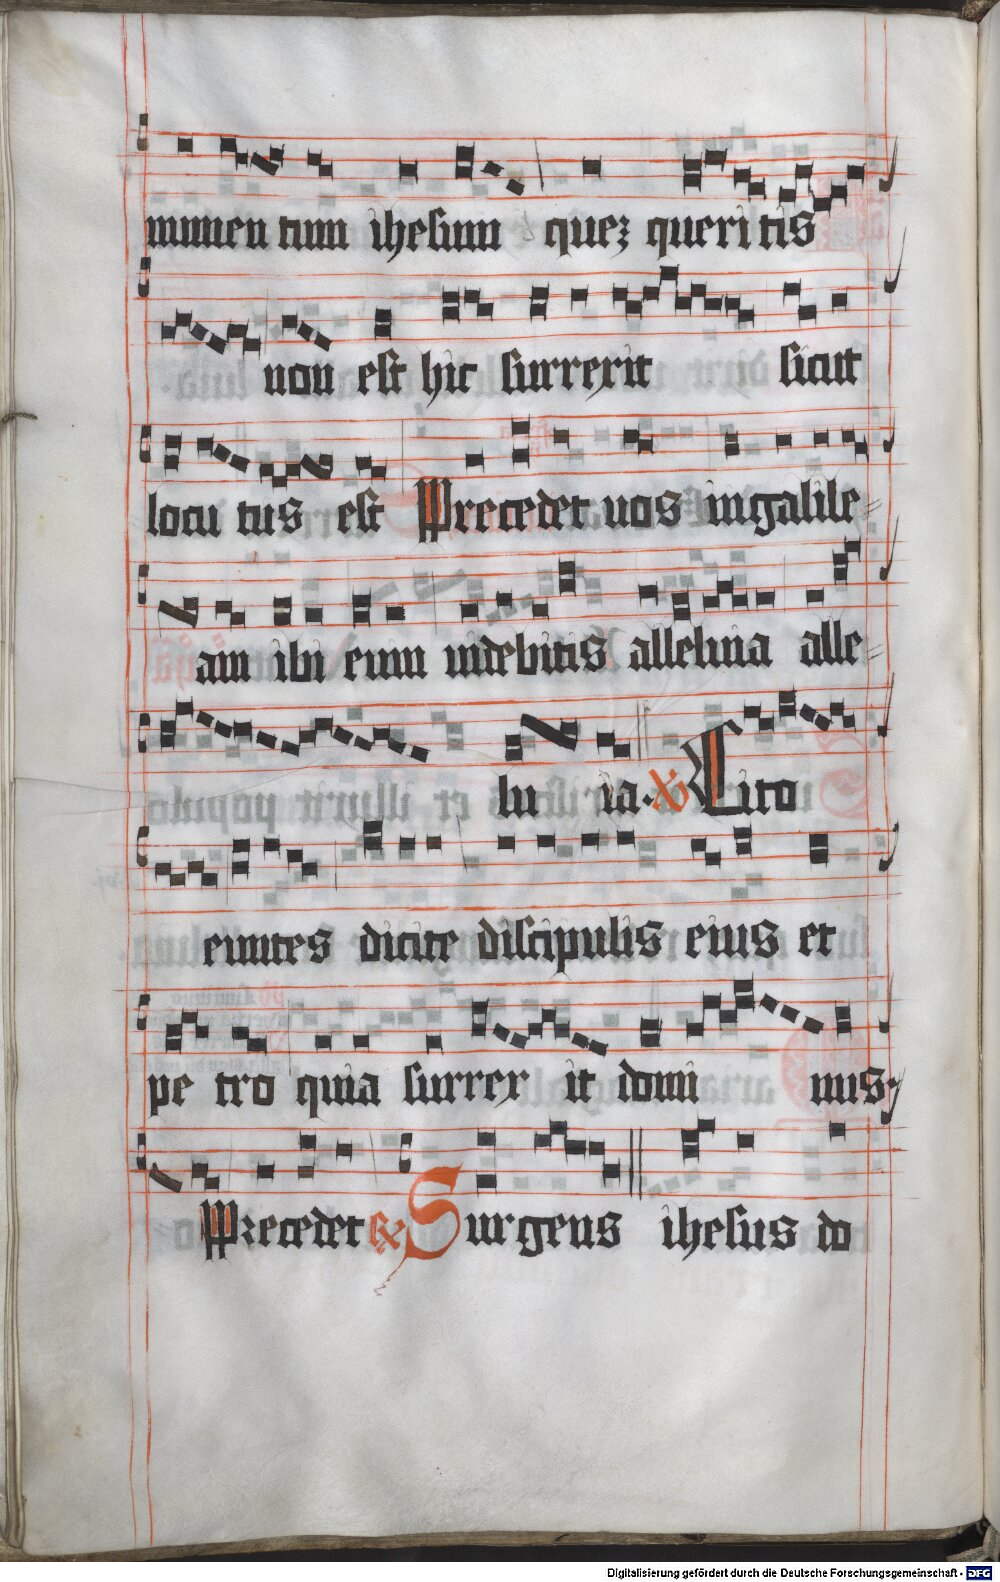 numen tum ihesum quez queri tis
non est hic surrexit sicut
locu tus est Precedet uos in galile
am ibi eum uidebitis alleluia alle
lu ia. ℣ Cito
euntes dicite discipulis eius et
pe tro quia surrex it domi nus.
Precedet ℟ Surgens ihesus do
Digitalisierung gefördert durch die Deutsche Forschungsgemeinschaft - DFG